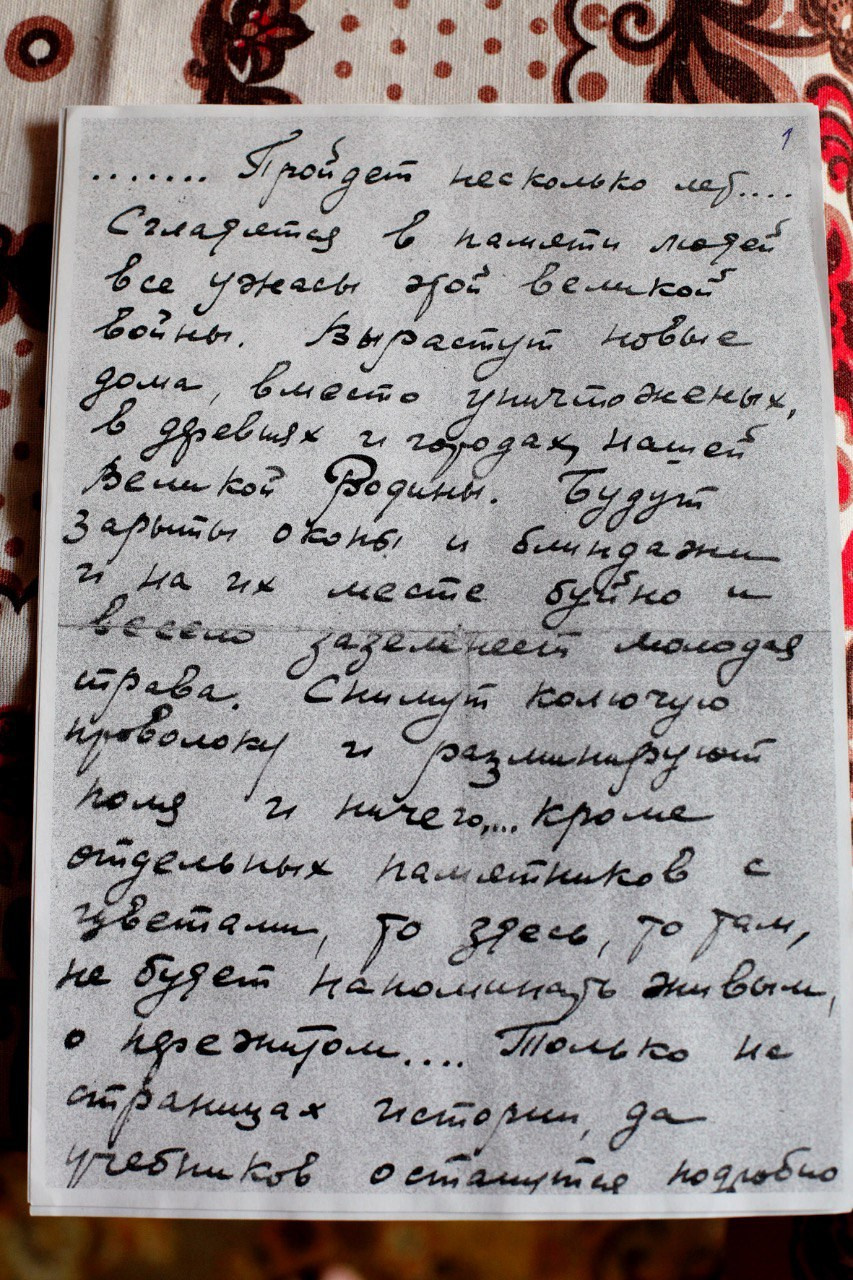 1
....... Пройдет несколько лет....
Сгладятся в памяти людей
все ужасы этой великой
войны. Вырастут новые
дома, вместо уничтоженых,
в деревнях и городах, нашей
Великой Родины. Будут
Зарыты окопы и блиндажи
и на их месте буйно и
весело зазеленеет молодая
трава. Снимут колючую
проволоку и разминируют
поля и ничего,... кроме
отдельных памятников с
цветами, то здесь, то там,
не будет напоминать живым,
о пережитом.... Только на
страницах истории, да
учебников останутся подробно